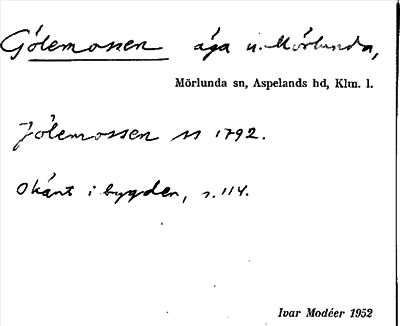 Gölemossen äga u. Mörlunda,
Mörlunda sn, Aspelands hd, Klm. l.
Jölemossen 1792.
Okänt i bygden, s. 114.
Ivar Modéer 1952